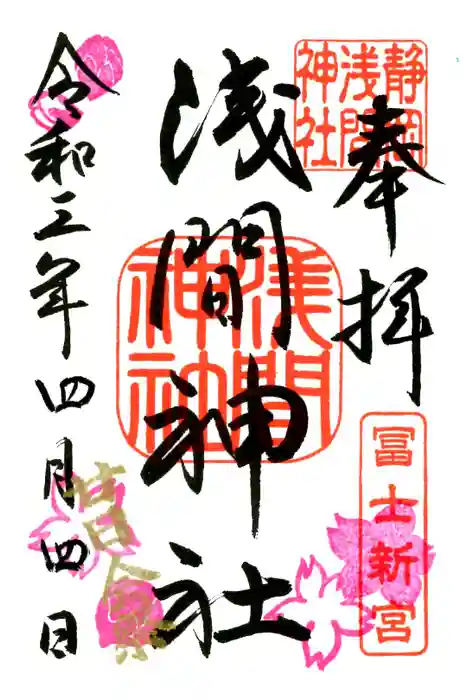 奉拝
静岡
浅間
神社
冨士新宮
浅間神社
浅間
神社
令和三年四月四日